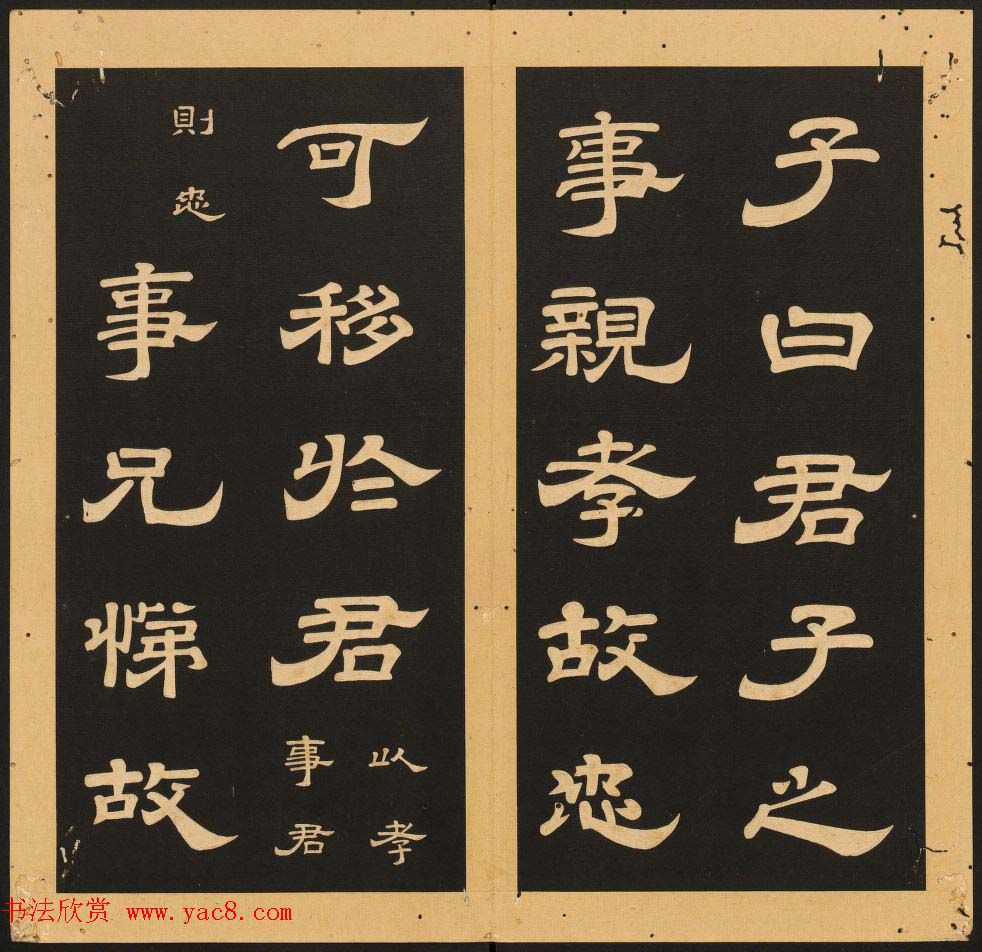 子曰君子之
事親孝故忠
可移於君
以孝
事君
則忠
事兄悌故
书法欣赏 www.yac8.com